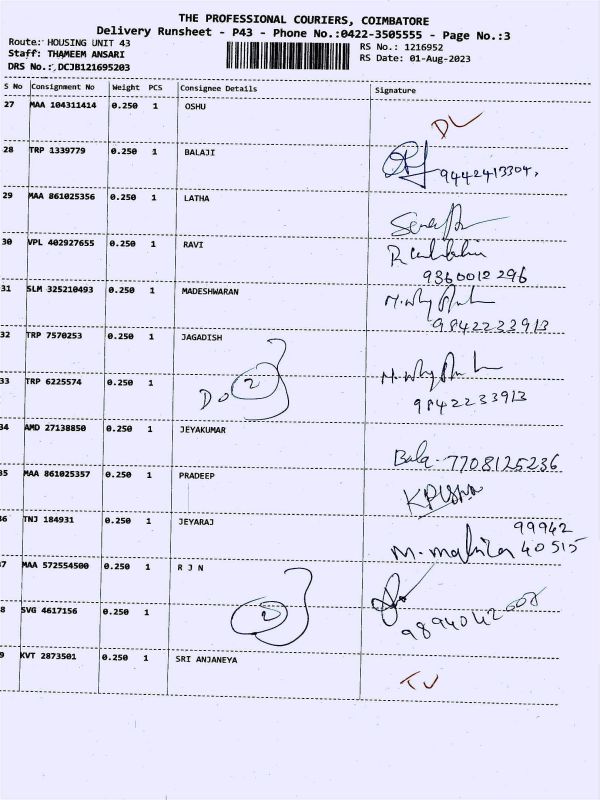 THE PROFESSIONAL COURIERS, COIMBATORE
Delivery Runsheet - P43 - Phone No.:0422-3505555 - Page No.:3
Route: HOUSING UNIT 43
RS No.: 1216952
Staff: THAMEEM ANSARI
RS Date: 01-Aug-2023
DRS No.: DCJB121695203
S No Consignment No Weight PCS Consignee Details Signature
27 MAA 104311414 0.250 1 OSHU
DL
28 TRP 1339779 0.250 1 BALAJI
9442413304.
29 MAA 861025356 0.250 1 LATHA
30 VPL 402927655 0.250 1 RAVI
9360012296
31 SLM 325210493 0.250 1 MADESHWARAN
9842233913
32 TRP 7570253 0.250 1 JAGADISH
33 TRP 6225574 0.250 1 Do 2
9842233913
34 AMD 27138850 0.250 1 JEYAKUMAR
Bala - 7708125236
35 MAA 861025357 0.250 1 PRADEEP
36 TNJ 184931 0.250 1 JEYARAJ
99942
M. 40515
37 MAA 572554500 0.250 1 R J N
8 SVG 4617156 0.250 1 2
9894042008
9 KVT 2873501 0.250 1 SRI ANJANEYA